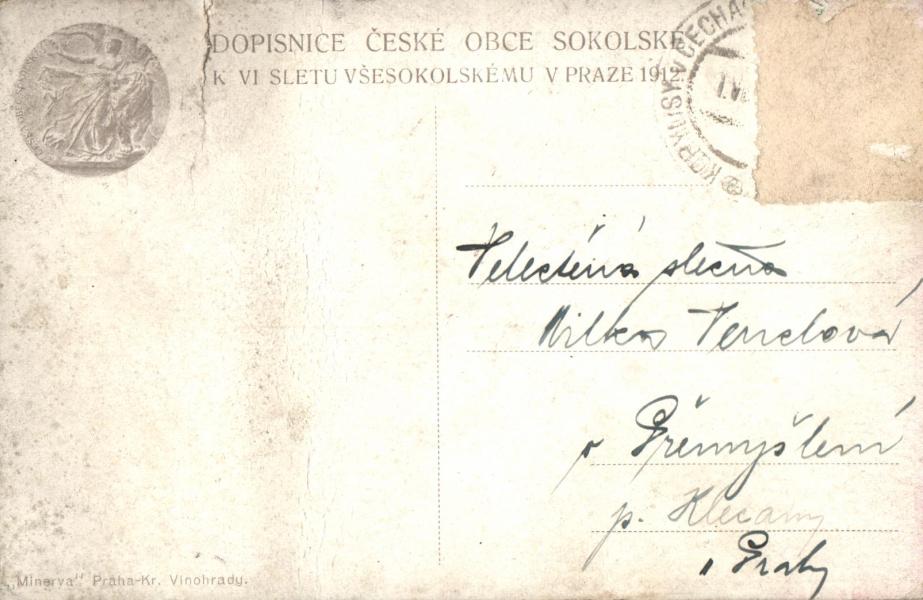 DOPISNICE ČESKÉ OBCE SOKOLSKÉ
K VI SLETU VŠESOKOLSKÉMU V PRAZE 1912.
V ČECHÁCH
Velectěná slečna
Milka Venclová
v Přemyšlení
p. Klecany
u Prahy
„Minerva" Praha-Kr. Vinohrady.